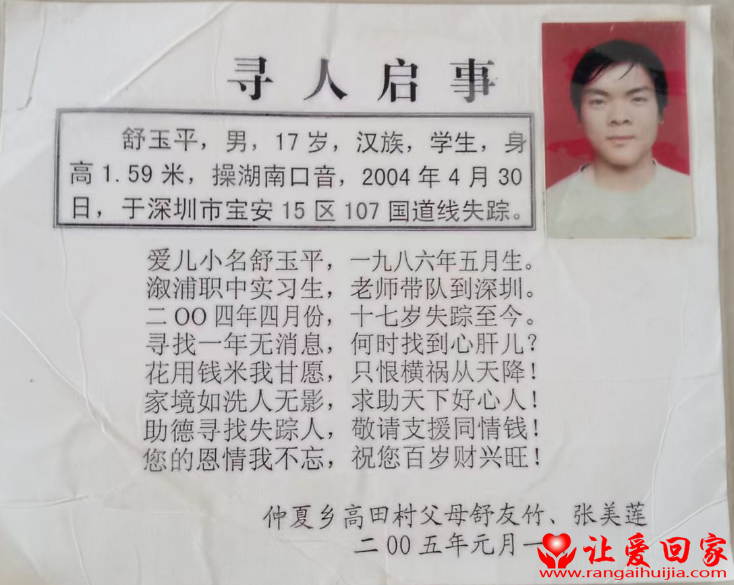 寻人启事
舒玉平，男，17岁，汉族，学生，身
高1.59米，操湖南口音，2004年4月30
日，于深圳市宝安15区107国道线失踪。
爱儿小名舒玉平，一九八六年五月生。
溆浦职中实习生，老师带队到深圳。
二OO四年四月份，十七岁失踪至今。
寻找一年无消息，何时找到心肝儿？
花用钱米我甘愿，只恨横祸从天降！
家境如洗人无影，求助天下好心人！
助德寻找失踪人，敬请支援同情钱！
您的恩情我不忘，祝您百岁财兴旺！
仲夏乡高田村父母舒友竹、张美莲
二OO五年元月一
让爱回家
www.rangaihuijia.com